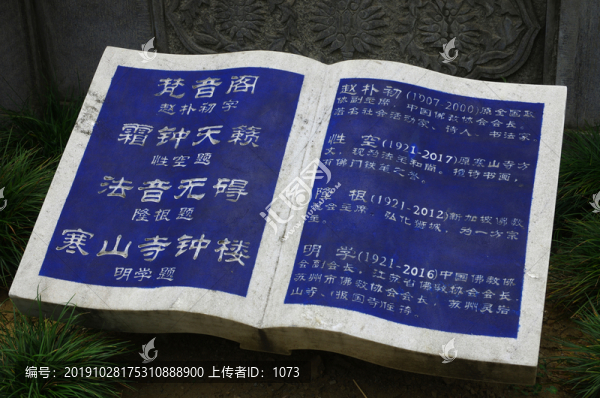 梵音阁
赵朴初 字
霜钟天籁
性空 题
法音无碍
隆根 题
寒山寺钟楼
明学 题
赵朴初(1907-2000)原全国政
协副主席，中国佛教协会会长，
著名社会活动家、诗人、书法家.
性 空(1921-2017)原寒山寺方
丈，现
佛门
隆 根(1921-2012)新加坡佛教
主席，弘化狮城，为一方宗
明 学(1921-2016)中国佛教协
会副会长，江苏省佛教协会会长，
苏州市佛教协会会长，苏州灵岩
山寺、(报国寺)住持.
编号：20191028175310888900 上传者ID：1073